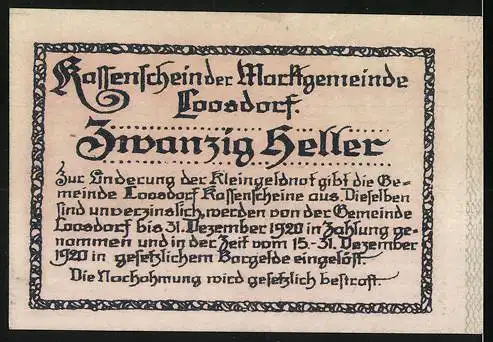 Kassenschein der Marktgemeinde
Loosdorf.
Zwanzig Heller
Zur Linderung der Kleingeldnot gibt die Ge-
meinde Loosdorf Kassenscheine aus. Dieselben
sind unverzinslich, werden von der Gemeinde
Loosdorf bis 31. Dezember 1920 in Zahlung ge-
nommen und in der Zeit vom 15.-31. Dezember
1920 in gesetzlichem Bargelde eingelöst.
Die Nachahmung wird gesetzlich bestraft.